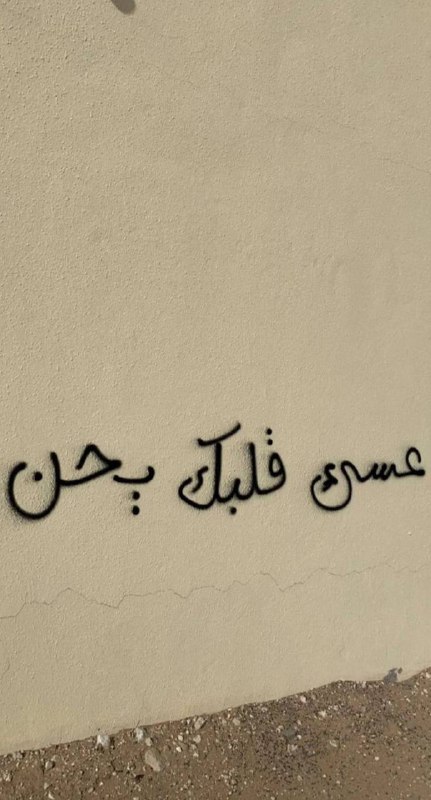 عسى قلبك يحن